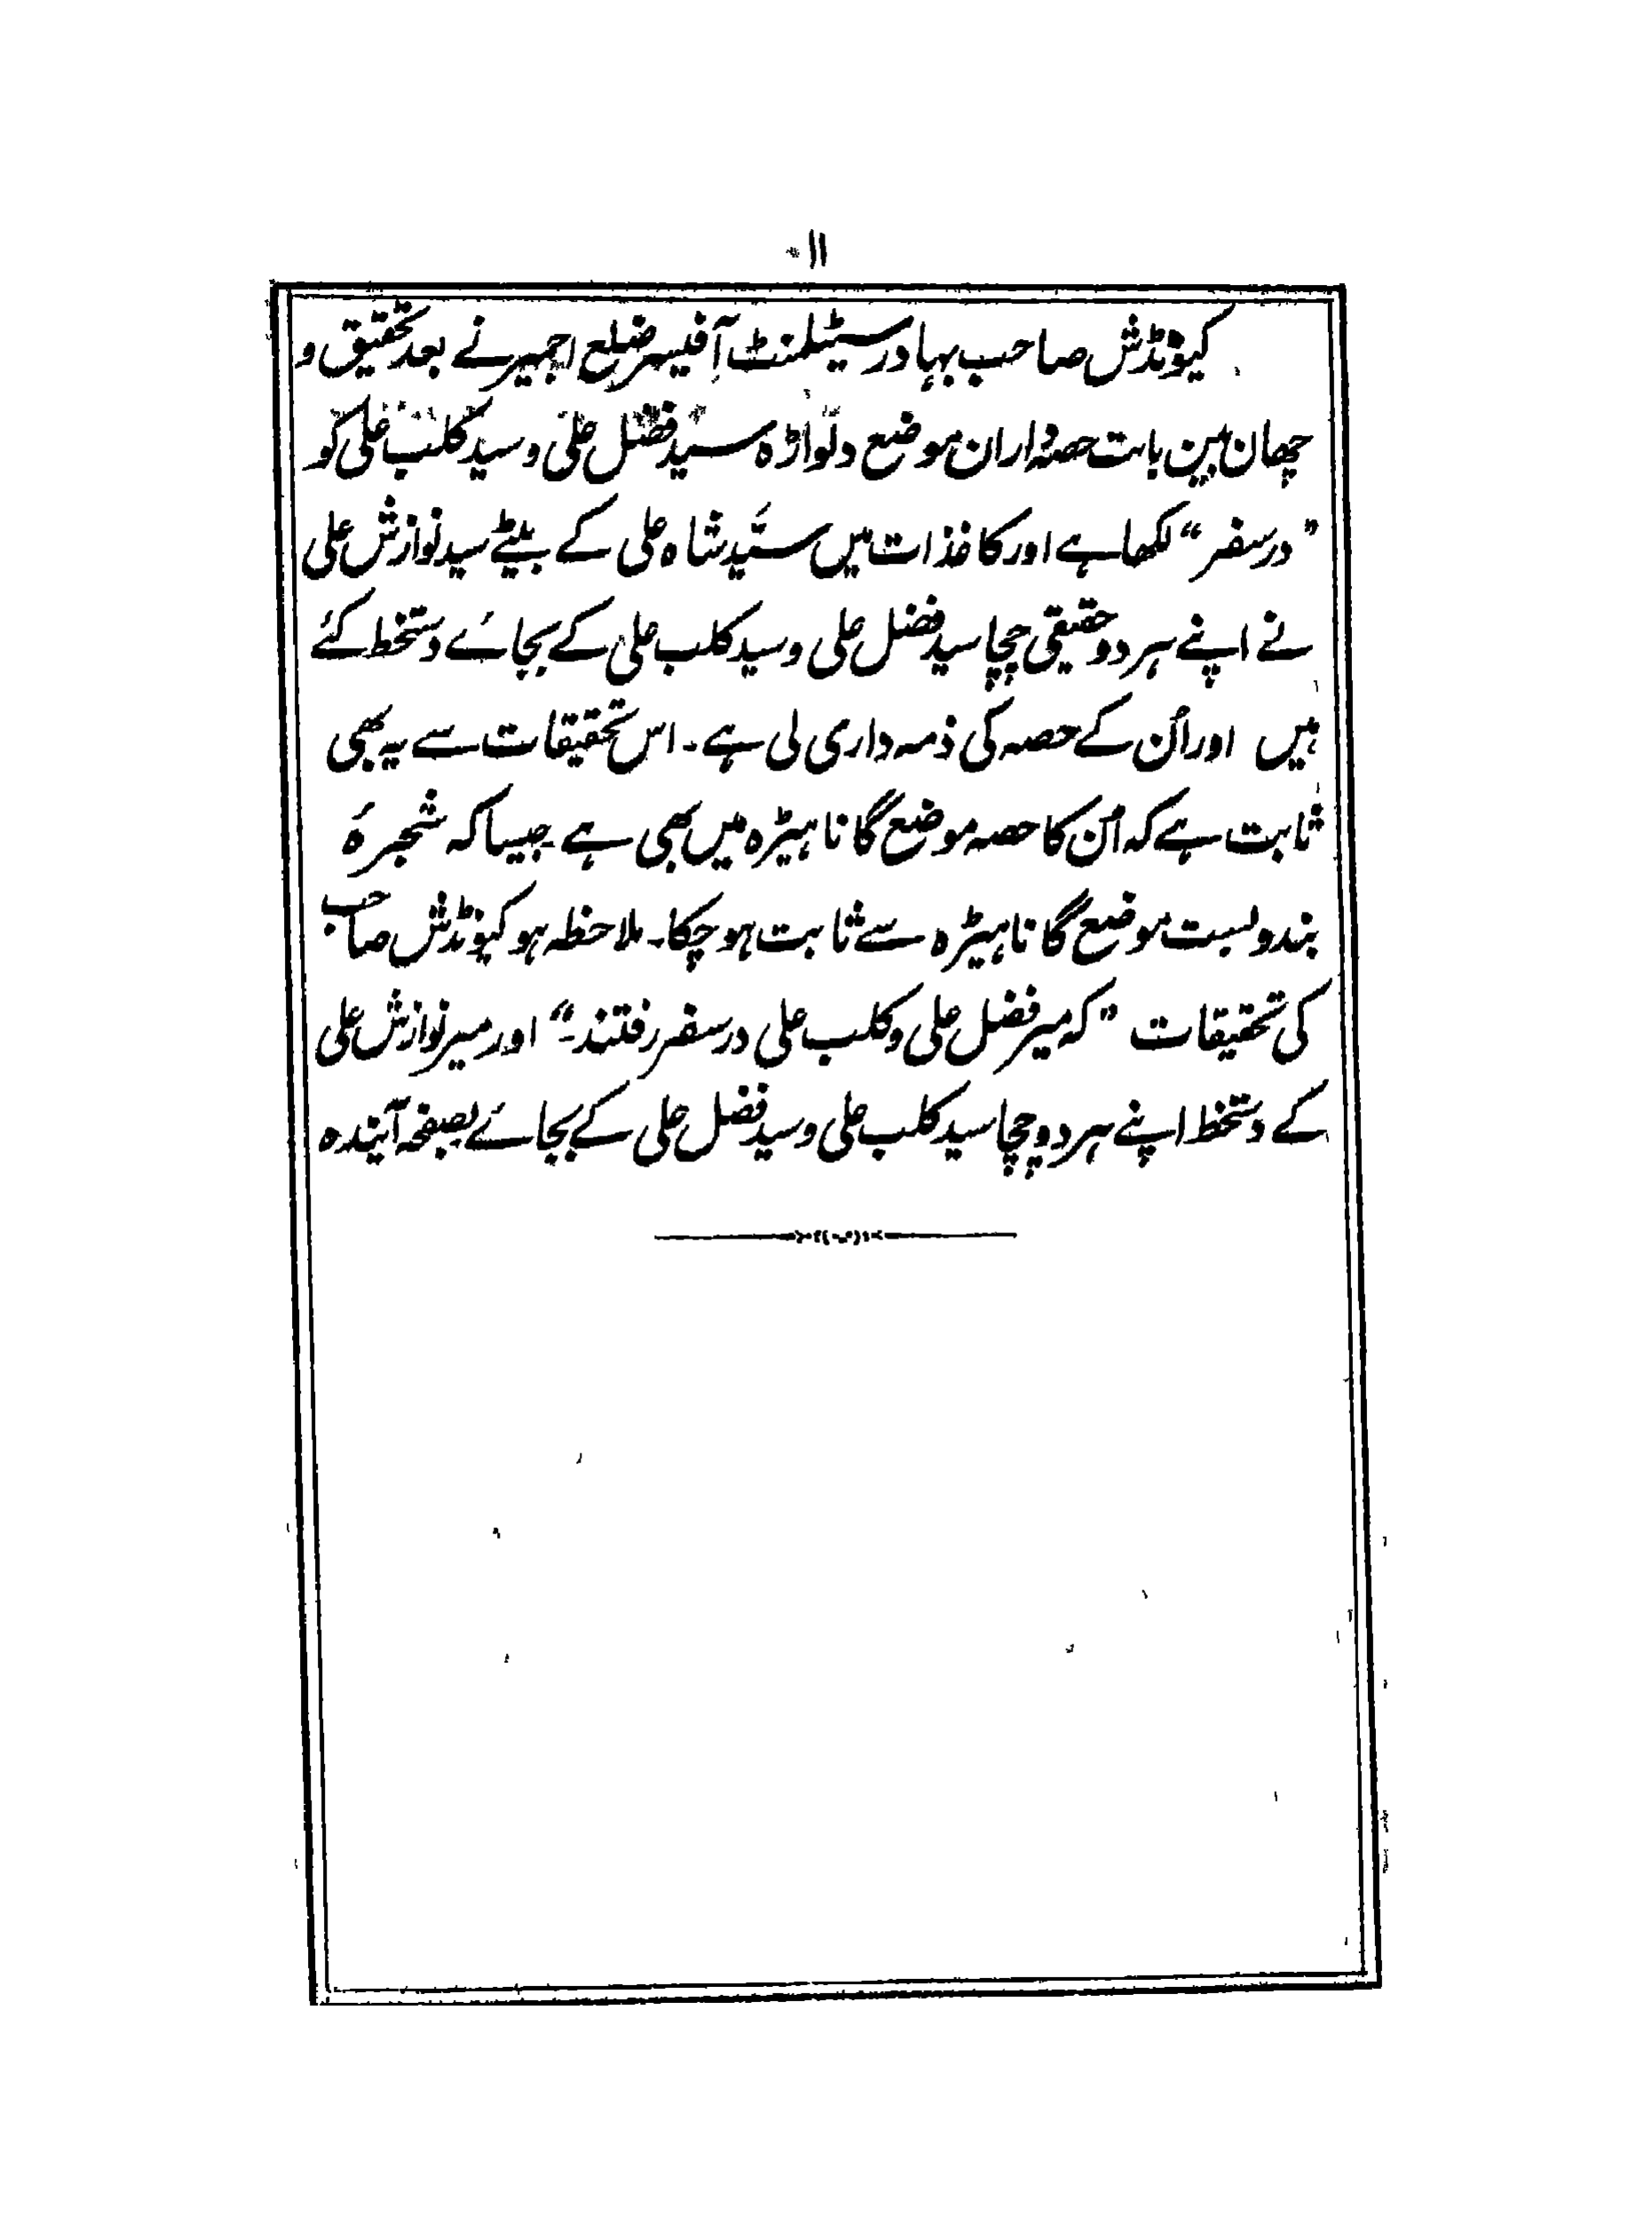 ۱۱
کیونڈش صاحب بہادر سیٹلمنٹ آفیسر ضلع اجمیر نے بعد تحقیق و
چھان بین بابت حصہ داران موضع دلواڑہ سید فضل علی و سید کلب علی کو
"در سفر" لکھا ہے اور کاغذات میں سیّد شاہ علی کے بیٹے سید نوازش علی
نے اپنے ہر دو حقیقی چچا سید فضل علی و سید کلب علی کے بجائے دستخط کئے
ہیں اور اُن کے حصہ کی ذمہ داری لی ہے۔ اس تحقیقات سے یہ بھی
ثابت ہے کہ اُن کا حصہ موضع گاناہیڑہ میں بھی ہے جیسا کہ شجرۂ
بندوبست موضع گاناہیڑہ سے ثابت ہو چکا۔ ملاحظہ ہو کیونڈش صاحب
کی تحقیقات "کہ میر فضل علی و کلب علی در سفر رفتند۔" اور میر نوازش علی
کے دستخط اپنے ہر دو چچا سید کلب علی و سید فضل علی کے بجائے بصفحہ آیندہ